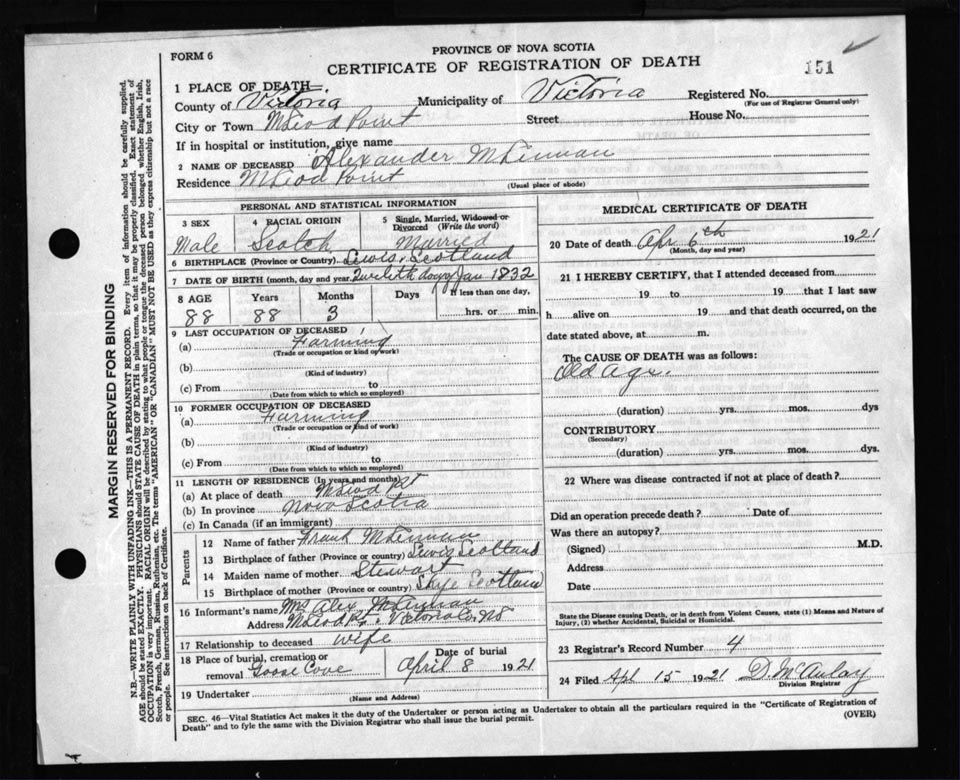 FORM 6
PROVINCE OF NOVA SCOTIA
CERTIFICATE OF REGISTRATION OF DEATH
151
1 PLACE OF DEATH
County of Victoria Municipality of Victoria Registered No.
(For use of Registrar General only)
City or Town McLeod Point Street House No.
If in hospital or institution, give name
2 NAME OF DECEASED Alexander McLennan
Residence McLeod Point
(Usual place of abode)
PERSONAL AND STATISTICAL INFORMATION
3 SEX 4 RACIAL ORIGIN 5 Single, Married, Widowed or Divorced (Write the word)
Male Scotch Married
6 BIRTHPLACE (Province or Country) Lewis, Scotland
7 DATE OF BIRTH (month, day and year) Twelfth day of Jan 1832
8 AGE Years Months Days If less than one day,
88 88 3 hrs. or min.
9 LAST OCCUPATION OF DECEASED
(a) Farming
(Trade or occupation or kind of work)
(b)
(Kind of industry)
(c) From to
(Date from which to which so employed)
10 FORMER OCCUPATION OF DECEASED
(a) Farming
(Trade or occupation or kind of work)
(b)
(Kind of industry)
(c) From to
(Date from which to which so employed)
11 LENGTH OF RESIDENCE (In years and months)
(a) At place of death McLeod Pt
(b) In province Nova Scotia
(c) In Canada (if an immigrant)
Parents
12 Name of father Frank McLennan
13 Birthplace of father (Province or country) Lewis Scotland
14 Maiden name of mother Stewart
15 Birthplace of mother (Province or country) Skye Scotland
16 Informant's name Mrs Alex McLennan
Address McLeod Pt. Victoria Co. NS
17 Relationship to deceased wife
18 Place of burial, cremation or removal Goose Cove
Date of burial April 8 1921
19 Undertaker
(Name and Address)
MEDICAL CERTIFICATE OF DEATH
20 Date of death Apr 6th 1921
(Month, day and year)
21 I HEREBY CERTIFY, that I attended deceased from
19 to 19 that I last saw
h alive on 19 and that death occurred, on the
date stated above, at m.
The CAUSE OF DEATH was as follows:
Old Age.
(duration) yrs. mos. dys
CONTRIBUTORY
(Secondary)
(duration) yrs. mos. dys.
22 Where was disease contracted if not at place of death?
Did an operation precede death? Date of
Was there an autopsy?
(Signed) M.D.
Address
Date
State the Disease causing Death, or in death from Violent Causes, state (1) Means and Nature of
Injury, (2) whether Accidental, Suicidal or Homicidal.
23 Registrar's Record Number 4
24 Filed Apl 15 1921 D. McAulay
Division Registrar
SEC. 46—Vital Statistics Act makes it the duty of the Undertaker or person acting as Undertaker to obtain all the particulars required in the "Certificate of Registration of
Death" and to fyle the same with the Division Registrar who shall issue the burial permit. (OVER)
MARGIN RESERVED FOR BINDING
N.B.—WRITE PLAINLY WITH UNFADING INK—THIS IS A PERMANENT RECORD. Every item of information should be carefully supplied.
AGE should be stated EXACTLY. PHYSICIANS should STATE CAUSE OF DEATH in plain terms, so that it may be properly classified. Exact statement of
OCCUPATION is very important. RACIAL ORIGIN will be described by stating to what people or tongue the deceased person belonged whether English, Irish,
Scotch, French, German, Russian, Ruthenian, etc. The terms "AMERICAN" OR "CANADIAN" MUST NOT BE USED as they express citizenship but not a race
or people. See instructions on back of Certificate.